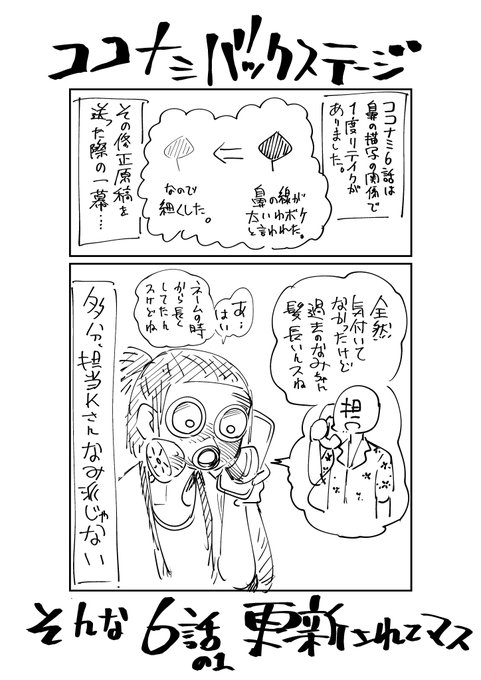 ココナミバックステージ
ココナミ6話は
鼻の描写の関係で
1度リテイクが
ありました。
鼻の線が
太いわボケ
と言われた。
なので
細くした。
その修正原稿を
送った際の一幕…
全然
気付いて
なかったけど
過去のなみちゃん
髪長いんスね
担
あ…
はい
ネームの時
から長く
してたん
スけどね
多分、担当Kさんなみ派じゃない
そんな6話の1更新されてマス